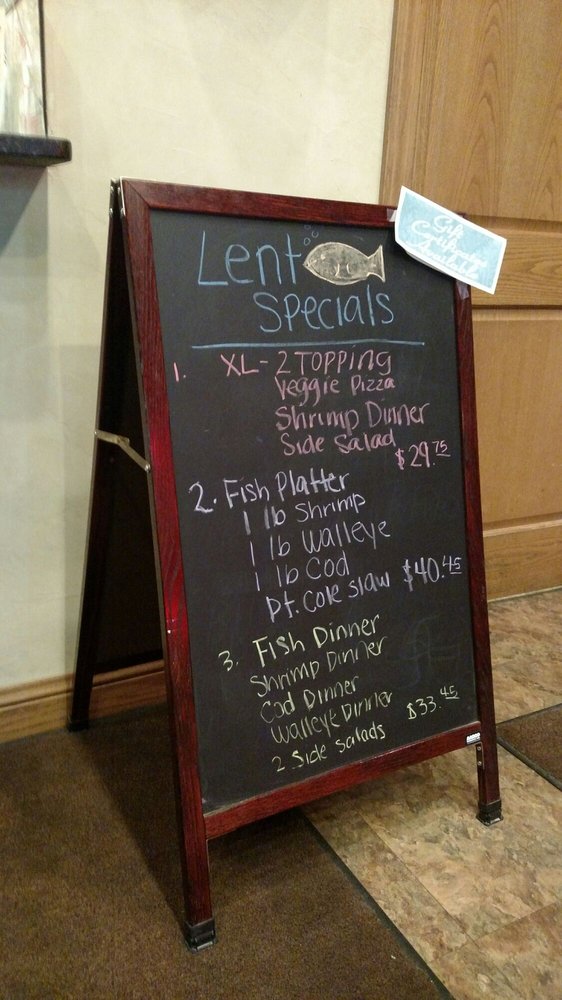 Lent
Specials
Gift
Certificates
Available
1. XL - 2 TOPPING
Veggie Pizza
Shrimp Dinner
Side Salad
$29.75
2. Fish Platter
1 lb Shrimp
1 lb Walleye
1 lb Cod
Pt. Cole Slaw $40.45
3. Fish Dinner
Shrimp Dinner
Cod Dinner
Walleye Dinner $33.45
2 Side Salads